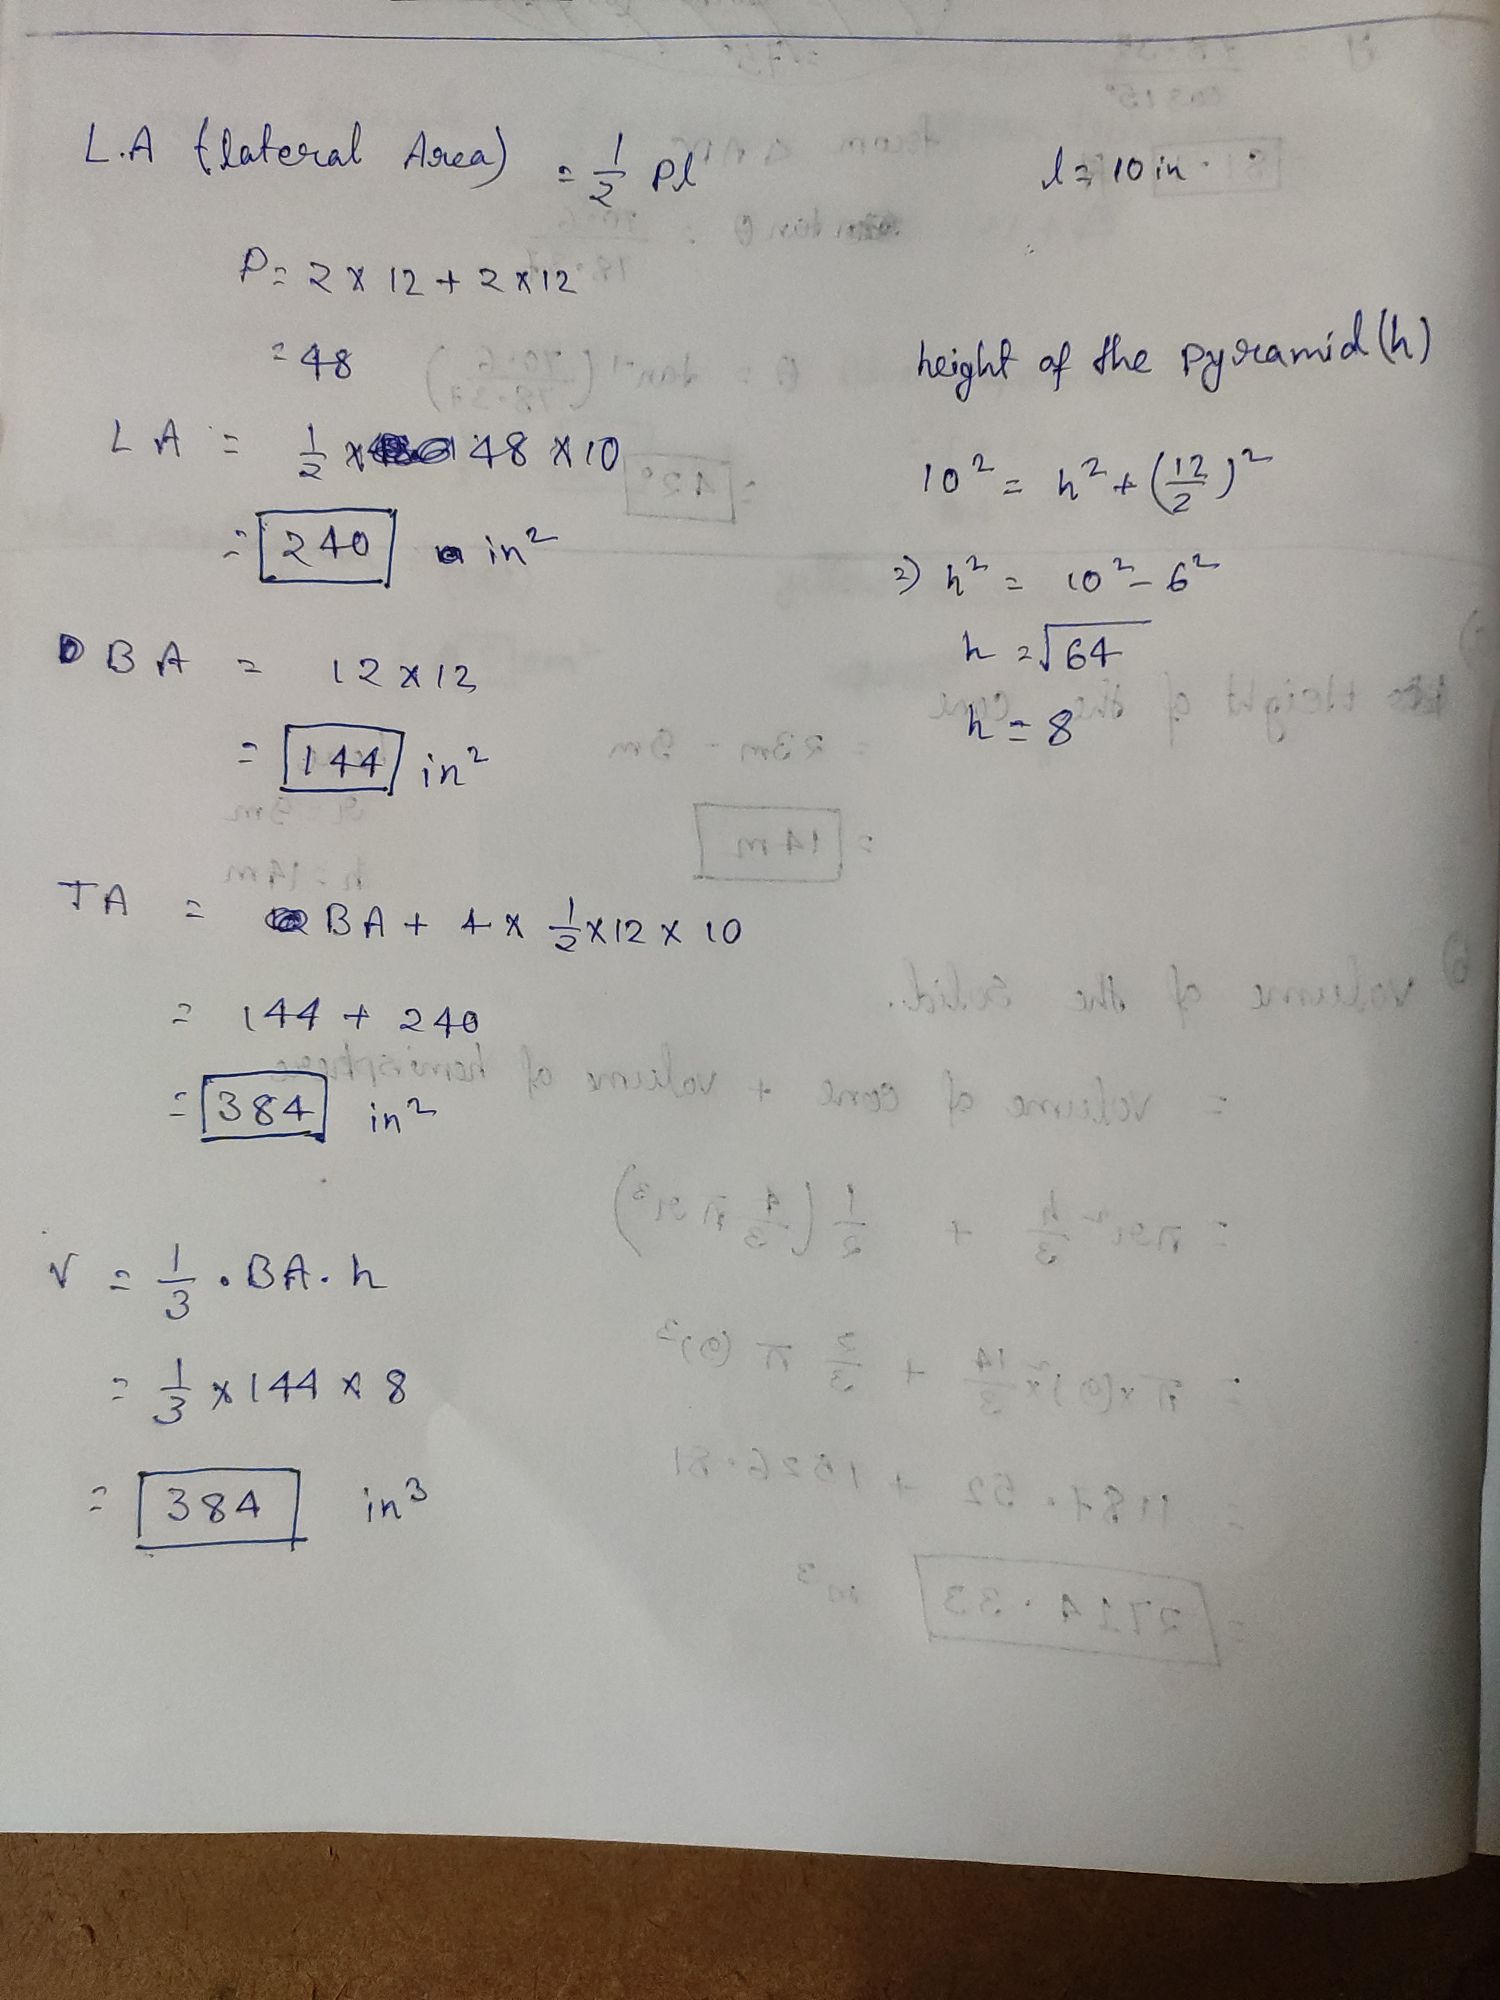 L.A (lateral Area) = 1/2 Pl
l = 10 in.
P = 2 × 12 + 2 × 12
= 48
LA = 1/2 × 48 × 10
= 240 in²
BA = 12 × 12
= 144 in²
TA = BA + 4 × 1/2 × 12 × 10
= 144 + 240
= 384 in²
V = 1/3 . BA . h
= 1/3 × 144 × 8
= 384 in³
height of the pyramid (h)
10² = h² + (12/2)²
⇒ h² = 10² - 6²
h = √64
h = 8